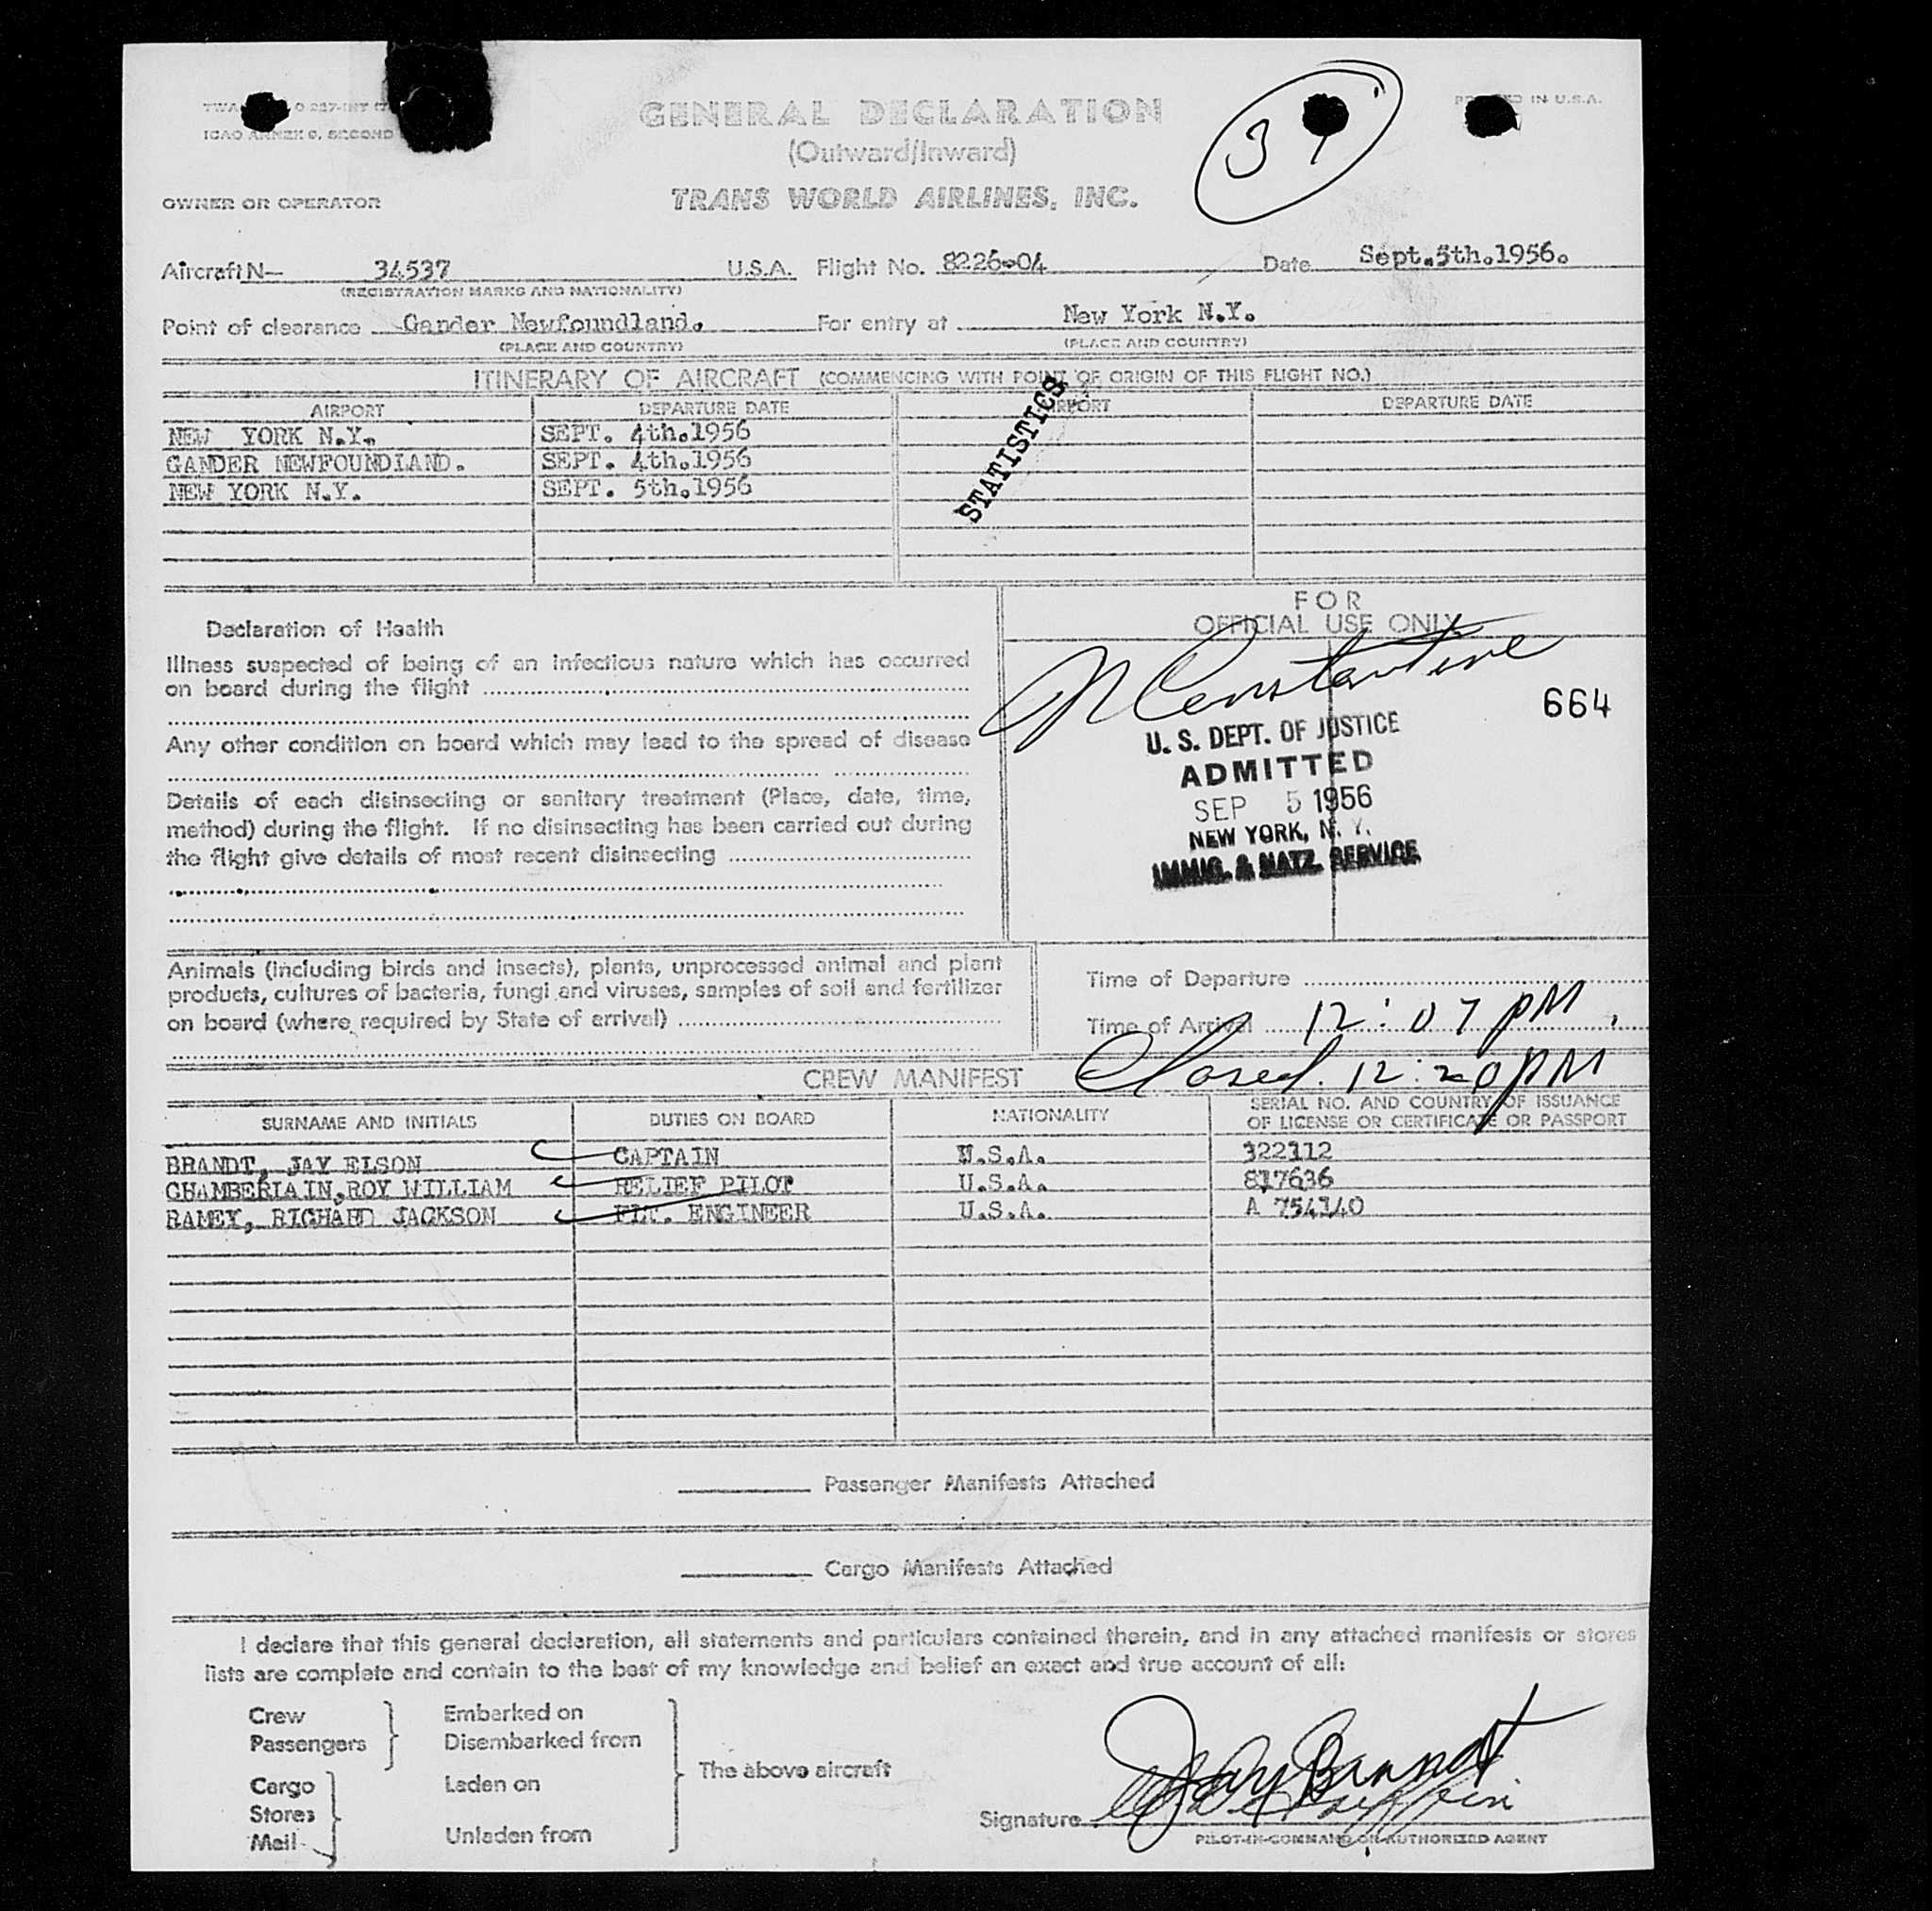 GENERAL DECLARATION
PRINTED IN U.S.A.
ICAO ANNEX 9, SECOND
(Outward/Inward)
3
OWNER OR OPERATOR
TRANS WORLD AIRLINES, INC.
Aircraft N— 34537 U.S.A. Flight No. 8226-04 Date Sept.5th.1956.
(REGISTRATION MARKS AND NATIONALITY)
Point of clearance Gander Newfoundland. For entry at New York N.Y.
(PLACE AND COUNTRY) (PLACE AND COUNTRY)
ITINERARY OF AIRCRAFT (COMMENCING WITH POINT OF ORIGIN OF THIS FLIGHT NO.)
AIRPORT DEPARTURE DATE AIRPORT DEPARTURE DATE
NEW YORK N.Y. SEPT. 4th.1956
GANDER NEWFOUNDLAND. SEPT. 4th.1956
NEW YORK N.Y. SEPT. 5th.1956
STATISTICS
FOR
OFFICIAL USE ONLY
N Constantine
664
U. S. DEPT. OF JUSTICE
ADMITTED
SEP 5 1956
NEW YORK, N. Y.
IMMIG. & NATZ. SERVICE
Declaration of Health
Illness suspected of being of an infectious nature which has occurred
on board during the flight
Any other condition on board which may lead to the spread of disease
Details of each disinsecting or sanitary treatment (Place, date, time,
method) during the flight. If no disinsecting has been carried out during
the flight give details of most recent disinsecting
Animals (including birds and insects), plants, unprocessed animal and plant
products, cultures of bacteria, fungi and viruses, samples of soil and fertilizer
on board (where required by State of arrival)
Time of Departure
Time of Arrival 12:07 PM
Closed. 12:20 PM
CREW MANIFEST
SURNAME AND INITIALS DUTIES ON BOARD NATIONALITY SERIAL NO. AND COUNTRY OF ISSUANCE
OF LICENSE OR CERTIFICATE OR PASSPORT
BRANDT, JAY ELSON CAPTAIN U.S.A. 322112
CHAMBERLAIN,ROY WILLIAM RELIEF PILOT U.S.A. 817636
RAMEY, RICHARD JACKSON FLT. ENGINEER U.S.A. A 754140
Passenger Manifests Attached
Cargo Manifests Attached
I declare that this general declaration, all statements and particulars contained therein, and in any attached manifests or stores
lists are complete and contain to the best of my knowledge and belief an exact and true account of all:
Crew Embarked on
Passengers Disembarked from
The above aircraft
Cargo Laden on
Stores
Mail Unladen from
Jay Brandt
Signature
PILOT-IN-COMMAND OR AUTHORIZED AGENT